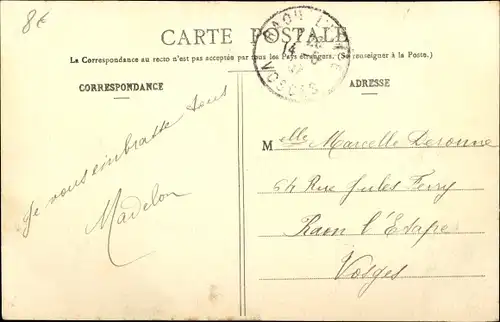 8€
CARTE POSTALE
La Correspondance au recto n'est pas acceptée par tous les Pays étrangers. (Se renseigner à la Poste.)
CORRESPONDANCE
ADRESSE
RAON L'ETAPE
VOSGES
Je vous embrasse tous
Madelon
Melle Marcelle Deronne
64 Rue Jules Ferry
Raon l'Etape
Vosges